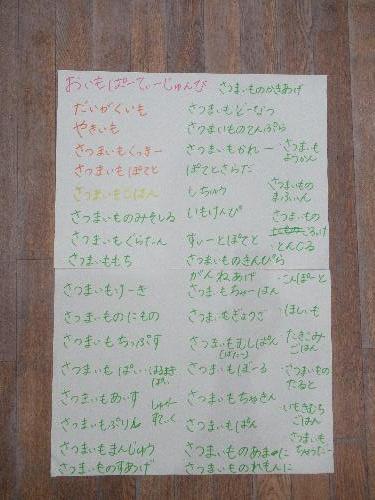 おいもぱーてぃーじゅんび
だいがくいも
やきいも
さつまいもくっきー
さつまいもぽてと
さつまいもごはん
さつまいものみそしる
さつまいもぐらたん
さつまいももち
さつまいもけーき
さつまいものにもの
さつまいもちっぷす
さつまいもぱい
はるまき
ぱい
さつまいもあいす
さつまいもぷりん
さつまいもまんじゅう
さつまいものすあげ
さつまいものかきあげ
さつまいもどーなつ
さつまいものてんぷら
さつまいもかれー
ぽてとさらだ
しちゅう
いもけんぴ
すぃーとぽてと
さつまいものきんぴら
がんねあげ
さつまいもちゃーはん
さつまいもぎょうざ
さつまいもむしぱん
(ばたー)
さつまいもぼーる
さつまいもちゃきん
さつまいもぱん
さつまいものあまに
さつまいものれもんに
・さつまいも
ようかん
さつまいもの
まふぃん
さつまいもの
ころっけ
・とんじる
・こんぽーと
・ほしいも
たきこみ
ごはん
・さつまいもの
たると
いもきむち
ごはん
さつまいも